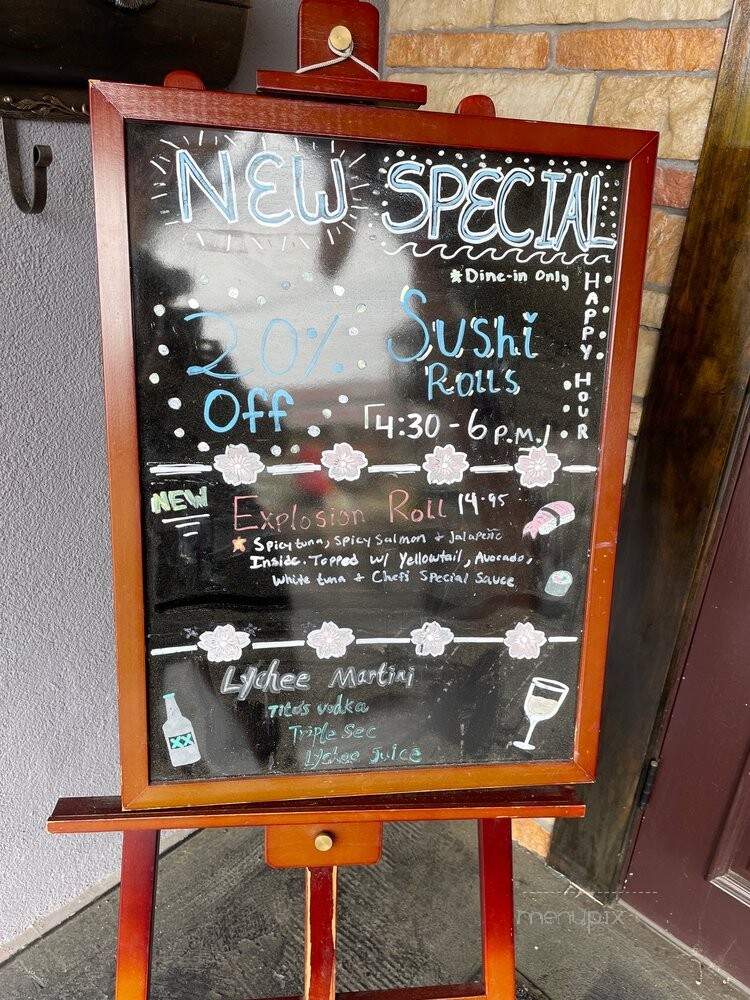 NEW SPECIAL
*Dine-in Only
HAPPY HOUR
20% Sushi
Off Rolls
4:30 - 6 P.M.
NEW
Explosion Roll 14.95
Spicy tuna, Spicy Salmon + Jalapeño
Inside. Topped w/ Yellowtail, Avocado,
White tuna + Chefs Special Sauce
Lychee Martini
Tito's vodka
Triple Sec
Lychee Juice
XX
menupix